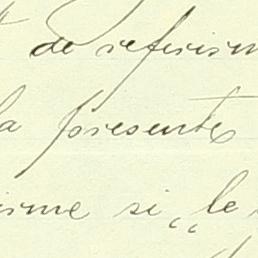 de referirm
la presente
irme si „le